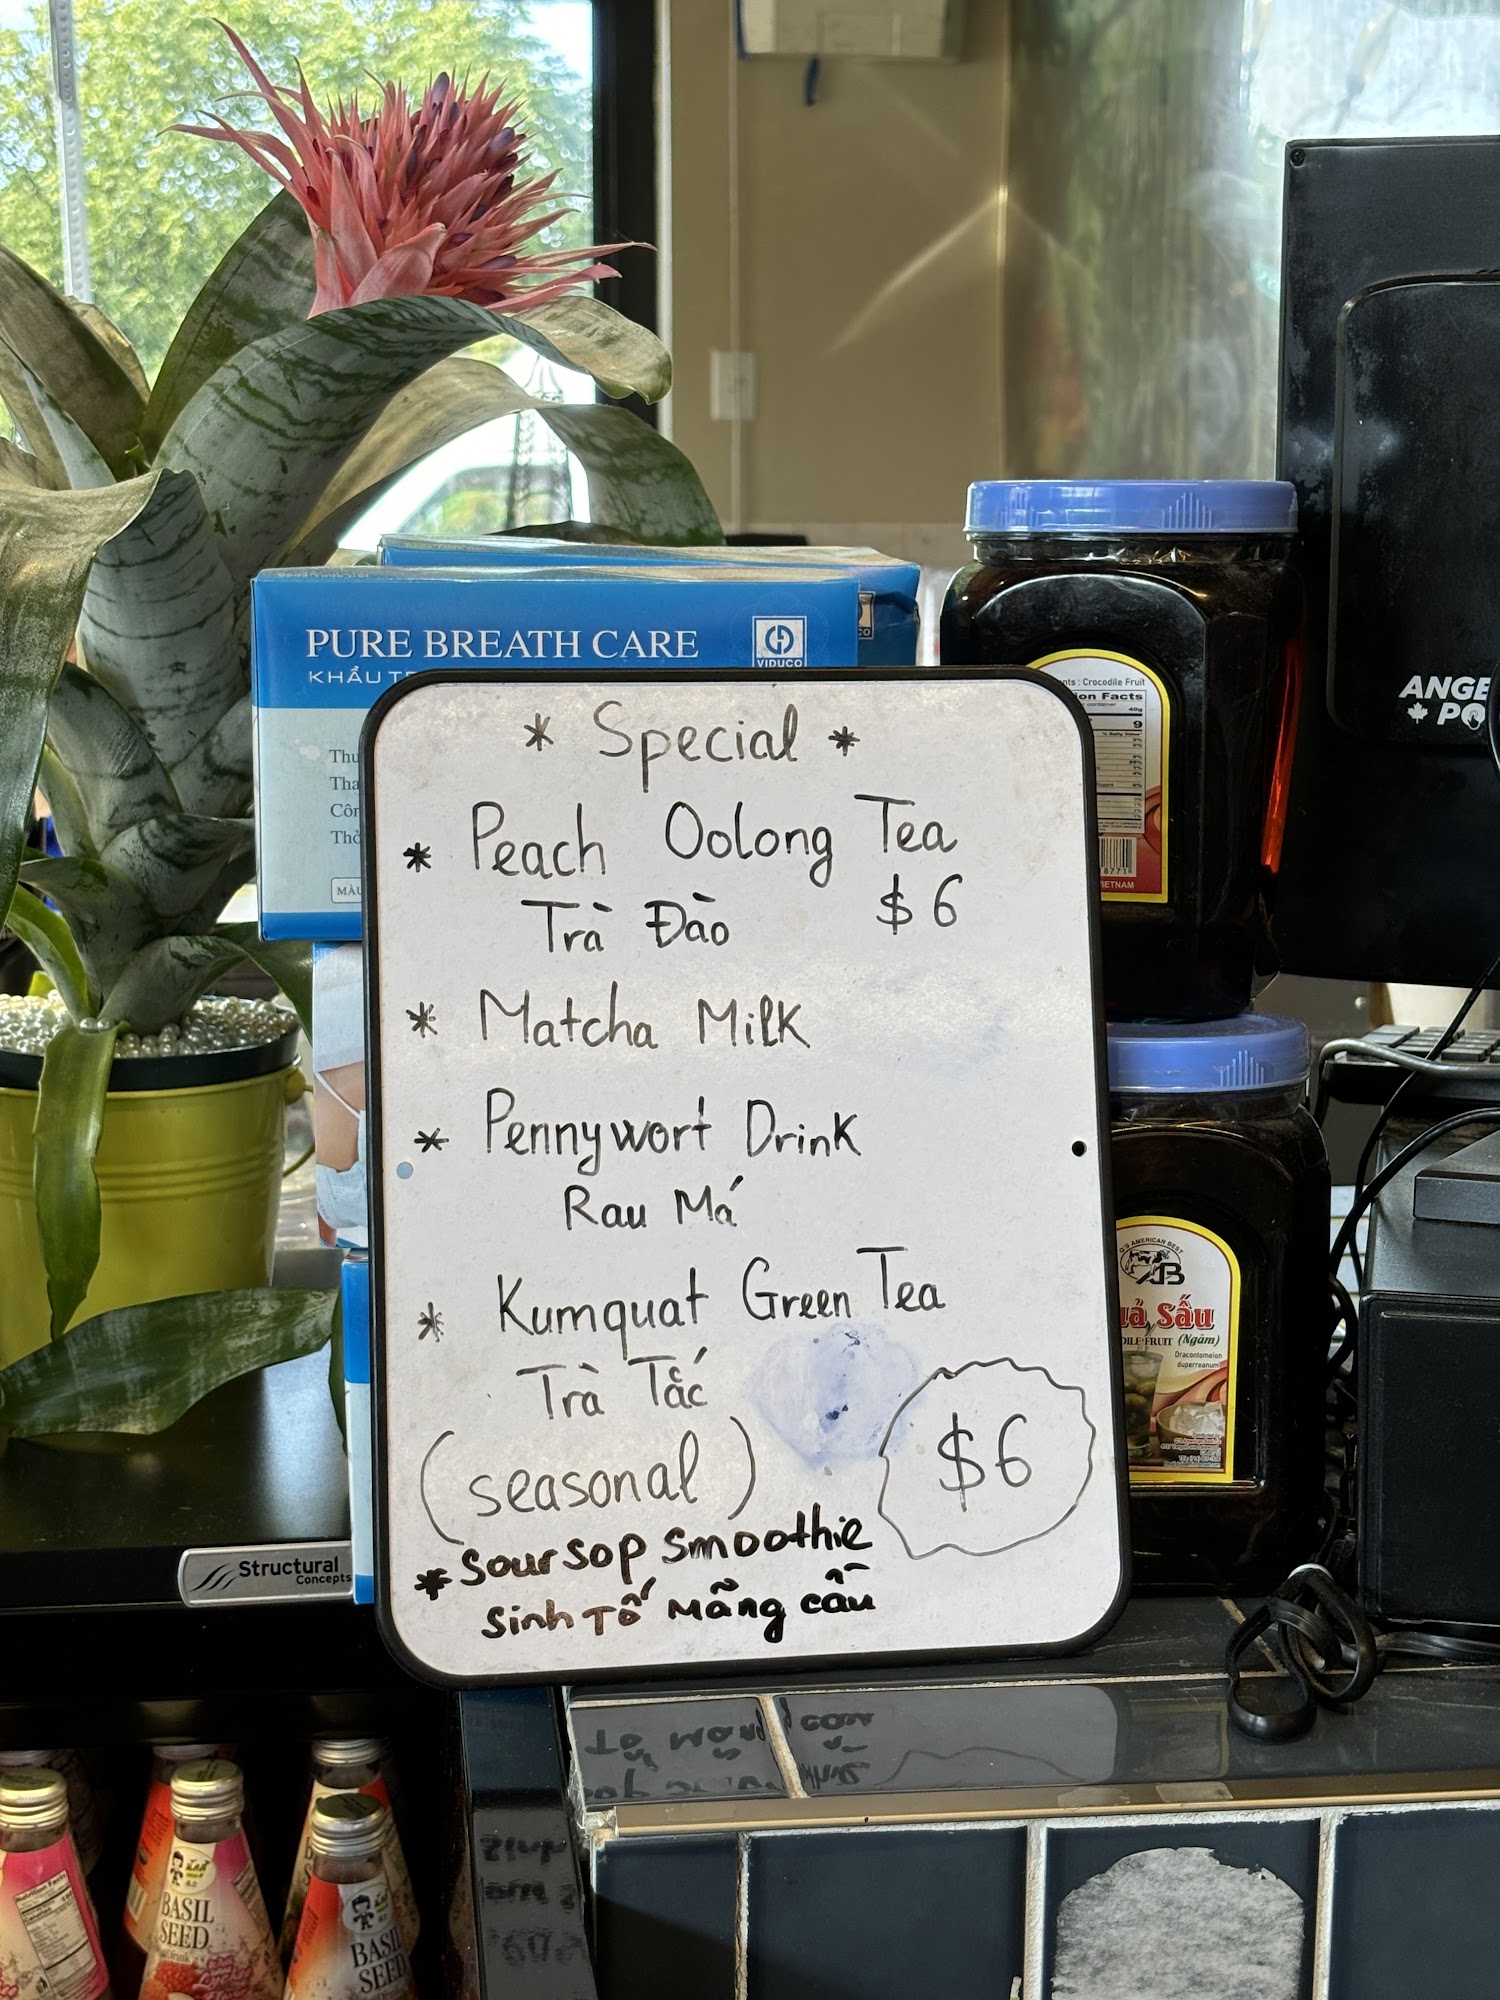 PURE BREATH CARE
VIDUCO
KHẨU
* Special *
* Peach Oolong Tea
Trà Đào $6
* Matcha Milk
* Pennywort Drink
Rau Má
* Kumquat Green Tea
Trà Tắc
(seasonal)
$6
* Soursop Smoothie
Sinh Tố Mãng cầu
: Crocodile Fruit
Facts
container
40g
9
% Daily Value
Q'S AMERICAN BEST
AB
Sấu
FRUIT (Ngâm)
Dracontomelon
duperreanum
Structural
Concepts
BASIL
SEED
Nutrition Facts
SEED